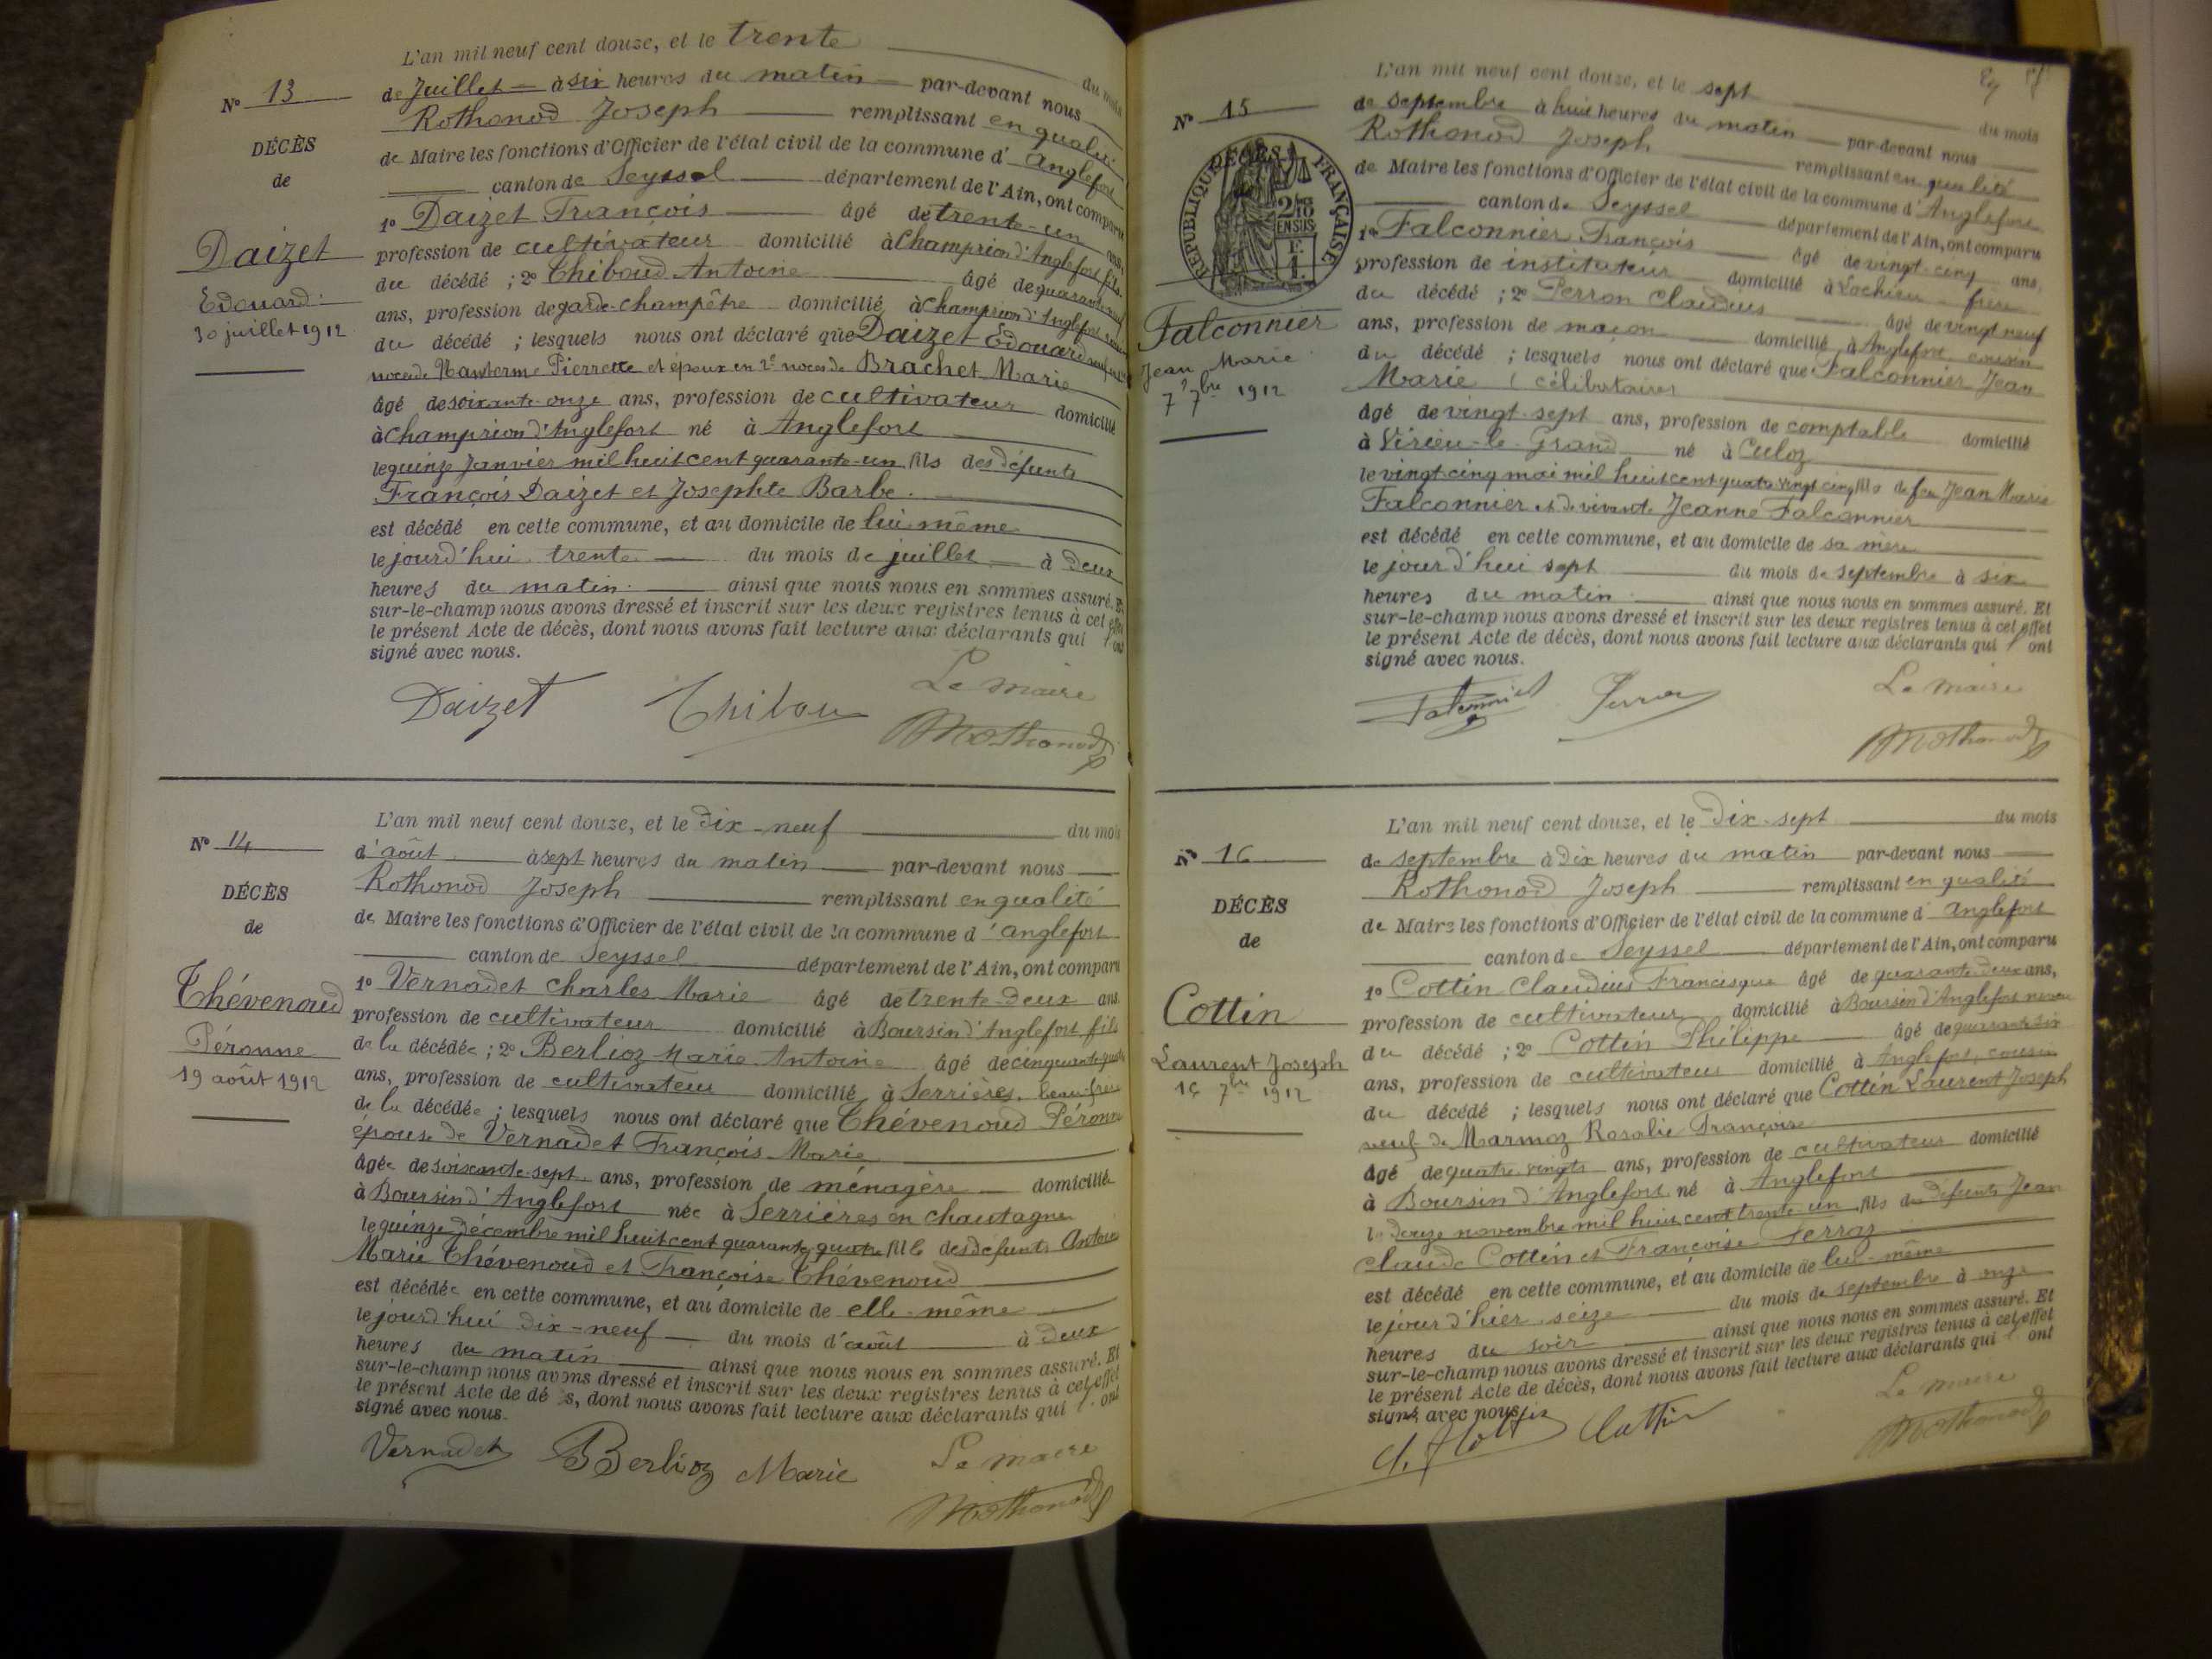 L'an mil neuf cent douze, et le trente du mois
N° 13
de Juillet à six heures du matin par-devant nous
Rothonod Joseph remplissant en qualité
DÉCÈS
de Maire les fonctions d'Officier de l'état civil de la commune d'Anglefort
de
canton de Seyssel département de l'Ain, ont comparu
1º Daizet François âgé de trente-un ans,
Daizet
profession de cultivateur domicilié à Champrion d'Anglefort fils
du décédé ; 2º Thiboud Antoine âgé de quarante
Edouard
ans, profession de garde-champêtre domicilié à Champrion d'Anglefort
30 juillet 1912
du décédé ; lesquels nous ont déclaré que Daizet Edouard
noces de Pierrette et époux en 2e noces de Brachet Marie
âgé de soixante-onze ans, profession de cultivateur domicilié
à Champrion d'Anglefort né à Anglefort
le quinze Janvier mil huit cent quarante-un fils des défunts
François Daizet et Josephte Barbe
est décédé en cette commune, et au domicile de lui-même
le jourd'hui trente du mois de juillet à deux
heures du matin ainsi que nous nous en sommes assuré. Et
sur-le-champ nous avons dressé et inscrit sur les deux registres tenus à cet effet
le présent Acte de décès, dont nous avons fait lecture aux déclarants qui l'ont
signé avec nous.
Le maire
Daizet Thibou Rothonod
L'an mil neuf cent douze, et le dix-neuf du mois
N° 14
d'août à sept heures du matin par-devant nous
Rothonod Joseph remplissant en qualité
DÉCÈS
de Maire les fonctions d'Officier de l'état civil de la commune d'Anglefort
de
canton de Seyssel département de l'Ain, ont comparu
1º Vernadet Charles Marie âgé de trente-deux ans
Thévenoud
profession de cultivateur domicilié à Boursin d'Anglefort fils
Péronne
de la décédée ; 2º Berlioz Marie Antoine âgé de cinquante-quatre
19 août 1912
ans, profession de cultivateur domicilié à Serrières, beau-frère
de la décédée ; lesquels nous ont déclaré que Thévenoud Péronne
épouse de Vernadet François Marie
âgée de soixante-sept ans, profession de ménagère domiciliée
à Boursin d'Anglefort née à Serrières en Chautagne
le quinze Décembre mil huit cent quarante quatre fille des défunts Antoine
Marie Thévenoud et Françoise Thévenoud
est décédée en cette commune, et au domicile de elle-même
le jourd'hui dix-neuf du mois d'août à deux
heures du matin ainsi que nous nous en sommes assuré. Et
sur-le-champ nous avons dressé et inscrit sur les deux registres tenus à cet effet
le présent Acte de décès, dont nous avons fait lecture aux déclarants qui l'ont
signé avec nous.
Vernadet Berlioz Marie Le maire
Rothonod
L'an mil neuf cent douze, et le sept du mois
N° 15
de septembre à huit heures du matin par-devant nous
Rothonod Joseph remplissant en qualité
DÉCÈS
RÉPUBLIQUE FRANÇAISE
2/10 EN SUS
de Maire les fonctions d'Officier de l'état civil de la commune d'Anglefort
canton de Seyssel département de l'Ain, ont comparu
1º Falconnier François âgé de vingt-cinq ans,
profession de instituteur domicilié à Lochieu frère
du décédé ; 2º Perron Claudius âgé de vingt neuf
Falconnier
ans, profession de maçon domicilié à Anglefort cousin
Jean Marie
du décédé ; lesquels nous ont déclaré que Falconnier Jean
7 7bre 1912
Marie célibataire
âgé de vingt-sept ans, profession de comptable domicilié
à Virieu-le-Grand né à Culoz
le vingt-cinq mai mil huit cent quatre vingt cinq fils de feu Jean Marie
Falconnier et de vivante Jeanne Falconnier
est décédé en cette commune, et au domicile de sa mère
le jourd'hui sept du mois de septembre à six
heures du matin ainsi que nous nous en sommes assuré. Et
sur-le-champ nous avons dressé et inscrit sur les deux registres tenus à cet effet
le présent Acte de décès, dont nous avons fait lecture aux déclarants qui l'ont
signé avec nous.
Le maire
Falconnier Perron
Rothonod
L'an mil neuf cent douze, et le dix-sept du mois
N° 16
de septembre à dix heures du matin par-devant nous
Rothonod Joseph remplissant en qualité
DÉCÈS
de Maire les fonctions d'Officier de l'état civil de la commune d'Anglefort
de
canton de Seyssel département de l'Ain, ont comparu
1º Cottin Claudius Francisque âgé de quarante-deux ans,
Cottin
profession de cultivateur domicilié à Boursin d'Anglefort neveu
du décédé ; 2º Cottin Philippe âgé de quarante six
Laurent Joseph
ans, profession de cultivateur domicilié à Anglefort, cousin
16 7bre 1912
du décédé ; lesquels nous ont déclaré que Cottin Laurent Joseph
veuf de Marmoz Rosalie Françoise
âgé de quatre-vingts ans, profession de cultivateur domicilié
à Boursin d'Anglefort né à Anglefort
le douze novembre mil huit cent trente-un fils de défunts Jean
Claude Cottin et Françoise Ferraz
est décédé en cette commune, et au domicile de lui-même
le jour d'hier seize du mois de septembre à onze
heures du soir ainsi que nous nous en sommes assuré. Et
sur-le-champ nous avons dressé et inscrit sur les deux registres tenus à cet effet
le présent Acte de décès, dont nous avons fait lecture aux déclarants qui l'ont
signé avec nous.
Le maire
Cottin Rothonod